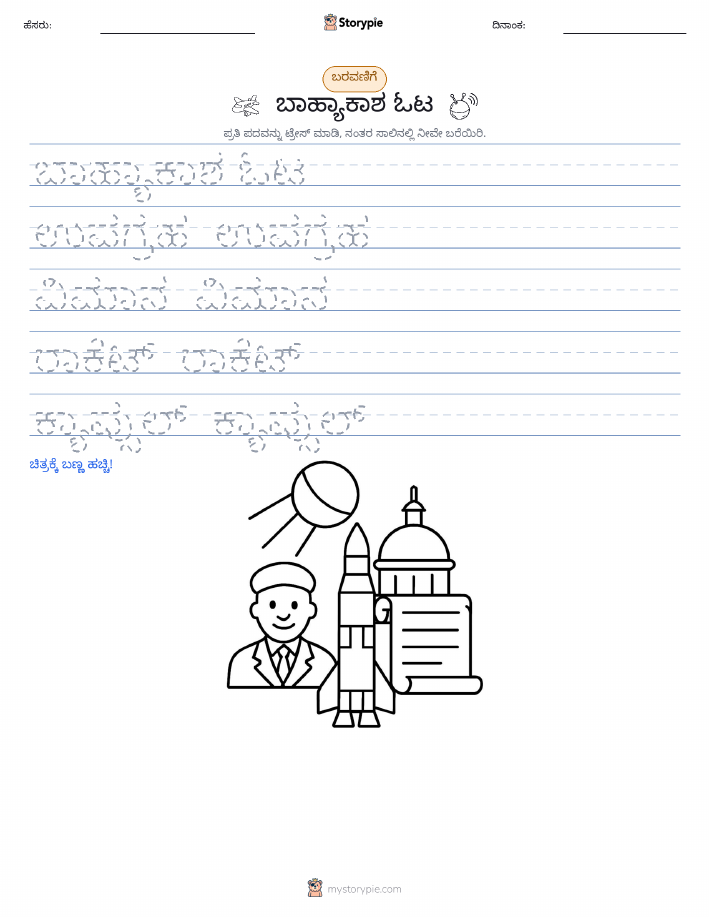 ಹೆಸರು:
Storypie
ದಿನಾಂಕ:
ಬರವಣಿಗೆ
ಬಾಹ್ಯಾಕಾಶ ಓಟ
ಪ್ರತಿ ಪದವನ್ನು ಟ್ರೇಸ್ ಮಾಡಿ, ನಂತರ ಸಾಲಿನಲ್ಲಿ ನೀವೇ ಬರೆಯಿರಿ.
ಬಾಹ್ಯಾಕಾಶ ಓಟ
ಉಪಗ್ರಹ ಉಪಗ್ರಹ
ವಿಮಾನ ವಿಮಾನ
ರಾಕೇಟ್ ರಾಕೇಟ್
ಕ್ಯಾಪ್ಸುಲ್ ಕ್ಯಾಪ್ಸುಲ್
ಚಿತ್ರಕ್ಕೆ ಬಣ್ಣ ಹಚ್ಚಿ!
mystorypie.com